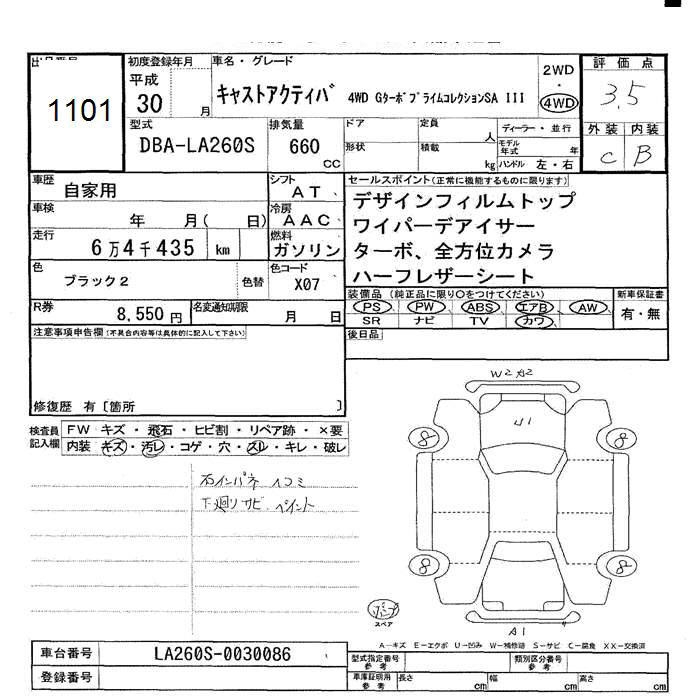 1101
初度登録年月
平成
30
月
車名・グレード
キャストアクティバ 4WD Gターボプライムコレクション SA III
2WD
・
4WD
評価点
3.5
外装 内装
C B
型式
DBA-LA260S
排気量
660
CC
ドア
形状
定員
人
積載
kg
ディーラー・並行
モデル年式
年
ハンドル 左・右
車歴
自家用
シフト
AT
車検
年 月( 日)
冷房
AAC
走行
6万4千435 km
燃料
ガソリン
色
ブラック2
色替
色コード
X07
R券
8,550円
名変通知期限
月 日
セールスポイント(正常に機能するものに限ります)
デザインフィルムトップ
ワイパーデアイサー
ターボ、全方位カメラ
ハーフレザーシート
装備品(純正品に限り○をつけてください)
PS PW ABS エアB AW
SR ナビ TV カワ
新車保証書
有・無
後日品
注意事項申告欄(不具合内容等は具体的に記入して下さい)
修復歴 有[箇所 ]
検査員
記入欄
FW キズ・飛石・ヒビ割・リペア跡・×要
内装 キズ・汚レ・コゲ・穴・スレ・キレ・破レ
右インパネ 凹コミ
下廻りサビ ペイント
W2 A2
U1
8
8
8
8
スペア
A1
A-キズ E-エクボ U-凹み W-補修跡 S-サビ C-腐食 XX-交換済
車台番号
LA260S-0030086
登録番号
型式指定番号
参考
類別区分番号
参考
車庫証明用
参考
長さ cm
幅 cm
高さ cm